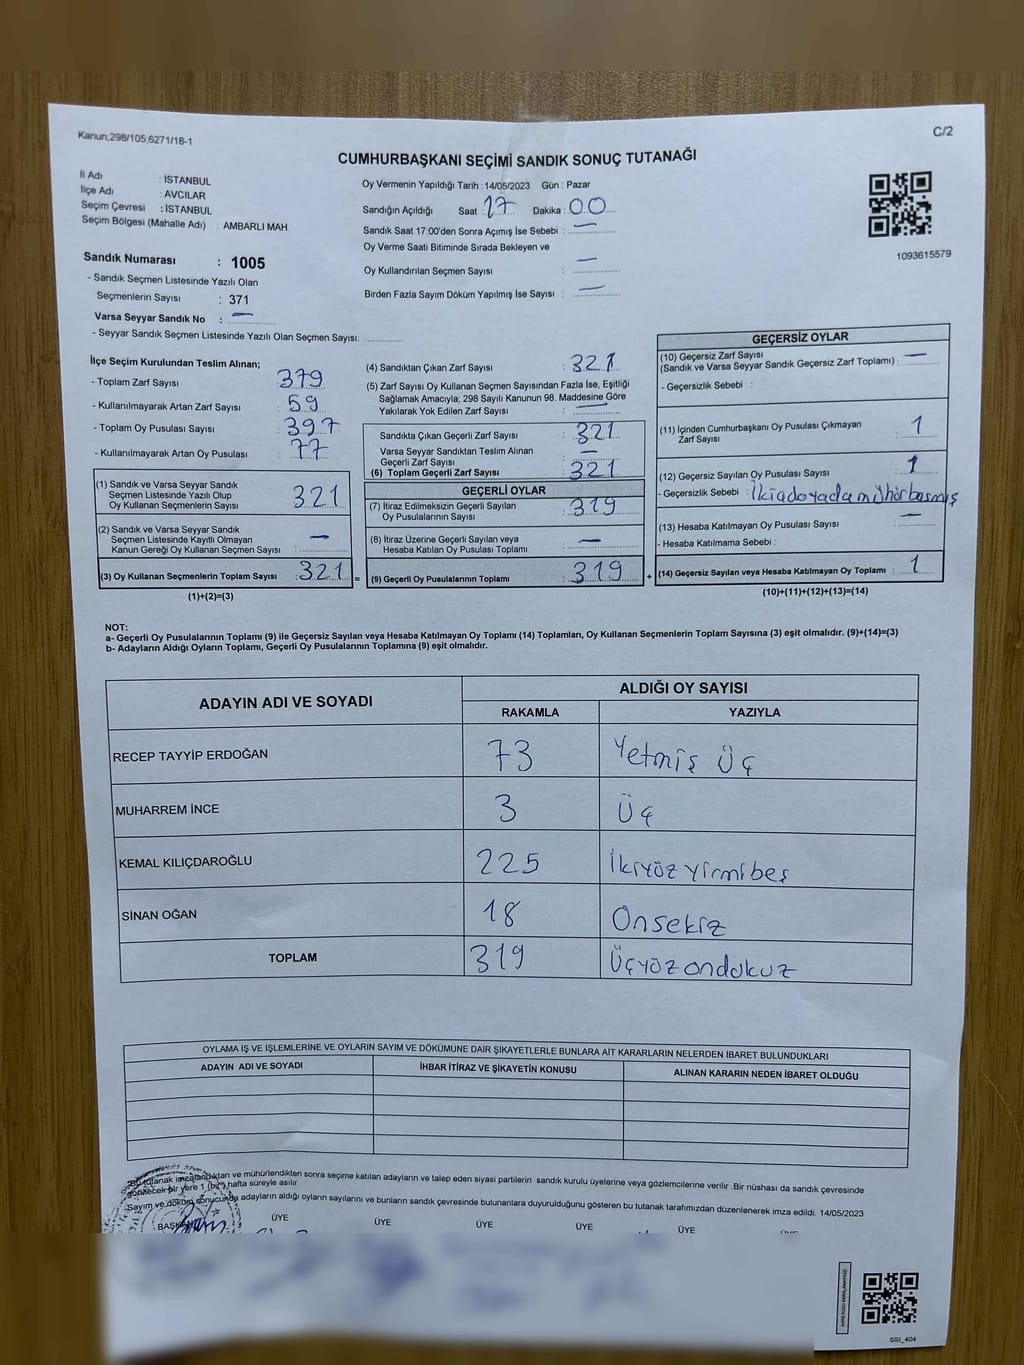 Kanun;298/105,6271/18-1
C/2
CUMHURBAŞKANI SEÇİMİ SANDIK SONUÇ TUTANAĞI
İl Adı : İSTANBUL
İlçe Adı : AVCILAR
Seçim Çevresi : İSTANBUL
Seçim Bölgesi (Mahalle Adı) : AMBARLI MAH.
Oy Vermenin Yapıldığı Tarih : 14/05/2023 Gün : Pazar
Sandığın Açıldığı Saat 17 Dakika : 00
Sandık Saat 17:00'den Sonra Açımış İse Sebebi : —
Oy Verme Saati Bitiminde Sırada Bekleyen ve
Oy Kullandırılan Seçmen Sayısı : —
Birden Fazla Sayım Döküm Yapılmış İse Sayısı : —
1093615579
Sandık Numarası : 1005
- Sandık Seçmen Listesinde Yazılı Olan
Seçmenlerin Sayısı : 371
Varsa Seyyar Sandık No : —
- Seyyar Sandık Seçmen Listesinde Yazılı Olan Seçmen Sayısı:
İlçe Seçim Kurulundan Teslim Alınan;
- Toplam Zarf Sayısı : 379
- Kullanılmayarak Artan Zarf Sayısı : 59
- Toplam Oy Pusulası Sayısı : 397
- Kullanılmayarak Artan Oy Pusulası : 77
(1) Sandık ve Varsa Seyyar Sandık
Seçmen Listesinde Yazılı Olup
Oy Kullanan Seçmenlerin Sayısı : 321
(2) Sandık ve Varsa Seyyar Sandık
Seçmen Listesinde Kayıtlı Olmayan
Kanun Gereği Oy Kullanan Seçmen Sayısı : —
(3) Oy Kullanan Seçmenlerin Toplam Sayısı : 321 =
(1)+(2)=(3)
(4) Sandıktan Çıkan Zarf Sayısı : 321
(5) Zarf Sayısı Oy Kullanan Seçmen Sayısından Fazla İse, Eşitliği
Sağlamak Amacıyla; 298 Sayılı Kanunun 98. Maddesine Göre
Yakılarak Yok Edilen Zarf Sayısı : —
Sandıkta Çıkan Geçerli Zarf Sayısı : 321
Varsa Seyyar Sandıktan Teslim Alınan
Geçerli Zarf Sayısı : —
(6) Toplam Geçerli Zarf Sayısı : 321
GEÇERLİ OYLAR
(7) İtiraz Edilmeksizin Geçerli Sayılan
Oy Pusulalarının Sayısı : 319
(8) İtiraz Üzerine Geçerli Sayılan veya
Hesaba Katılan Oy Pusulası Toplamı : —
(9) Geçerli Oy Pusulalarının Toplamı : 319 +
GEÇERSİZ OYLAR
(10) Geçersiz Zarf Sayısı
(Sandık ve Varsa Seyyar Sandık Geçersiz Zarf Toplamı) : —
- Geçersizlik Sebebi :
(11) İçinden Cumhurbaşkanı Oy Pusulası Çıkmayan
Zarf Sayısı : 1
(12) Geçersiz Sayılan Oy Pusulası Sayısı : 1
- Geçersizlik Sebebi : İkiadayadamühürbasmış
(13) Hesaba Katılmayan Oy Pusulası Sayısı : —
- Hesaba Katılmama Sebebi :
(14) Geçersiz Sayılan veya Hesaba Katılmayan Oy Toplamı : 1
(10)+(11)+(12)+(13)=(14)
NOT:
a- Geçerli Oy Pusulalarının Toplamı (9) ile Geçersiz Sayılan veya Hesaba Katılmayan Oy Toplamı (14) Toplamları, Oy Kullanan Seçmenlerin Toplam Sayısına (3) eşit olmalıdır. (9)+(14)=(3)
b- Adayların Aldığı Oyların Toplamı, Geçerli Oy Pusulalarının Toplamına (9) eşit olmalıdır.
ADAYIN ADI VE SOYADI
ALDIĞI OY SAYISI
RAKAMLA YAZIYLA
RECEP TAYYİP ERDOĞAN 73 Yetmiş Üç
MUHARREM İNCE 3 Üç
KEMAL KILIÇDAROĞLU 225 İkiyüz yirmi beş
SİNAN OĞAN 18 Onsekiz
TOPLAM 319 Üçyüz ondokuz
OYLAMA İŞ VE İŞLEMLERİNE VE OYLARIN SAYIM VE DÖKÜMÜNE DAİR ŞİKAYETLERLE BUNLARA AİT KARARLARIN NELERDEN İBARET BULUNDUKLARI
ADAYIN ADI VE SOYADI İHBAR İTİRAZ VE ŞİKAYETİN KONUSU ALINAN KARARIN NEDEN İBARET OLDUĞU
ve mühürlendikten sonra seçime katılan adayların ve talep eden siyasi partilerin sandık kurulu üyelerine veya gözlemcilerine verilir .Bir nüshası da sandık çevresinde
bir yere 1 (bir) hafta süreyle asılır.
Sayım ve döküm sonucunda adayların aldığı oyların sayılarını ve bunların sandık çevresinde bulunanlara duyurulduğunu gösteren bu tutanak tarafımızdan düzenlenerek imza edildi. 14/05/2023
ÜYE ÜYE ÜYE ÜYE ÜYE
SSI_404